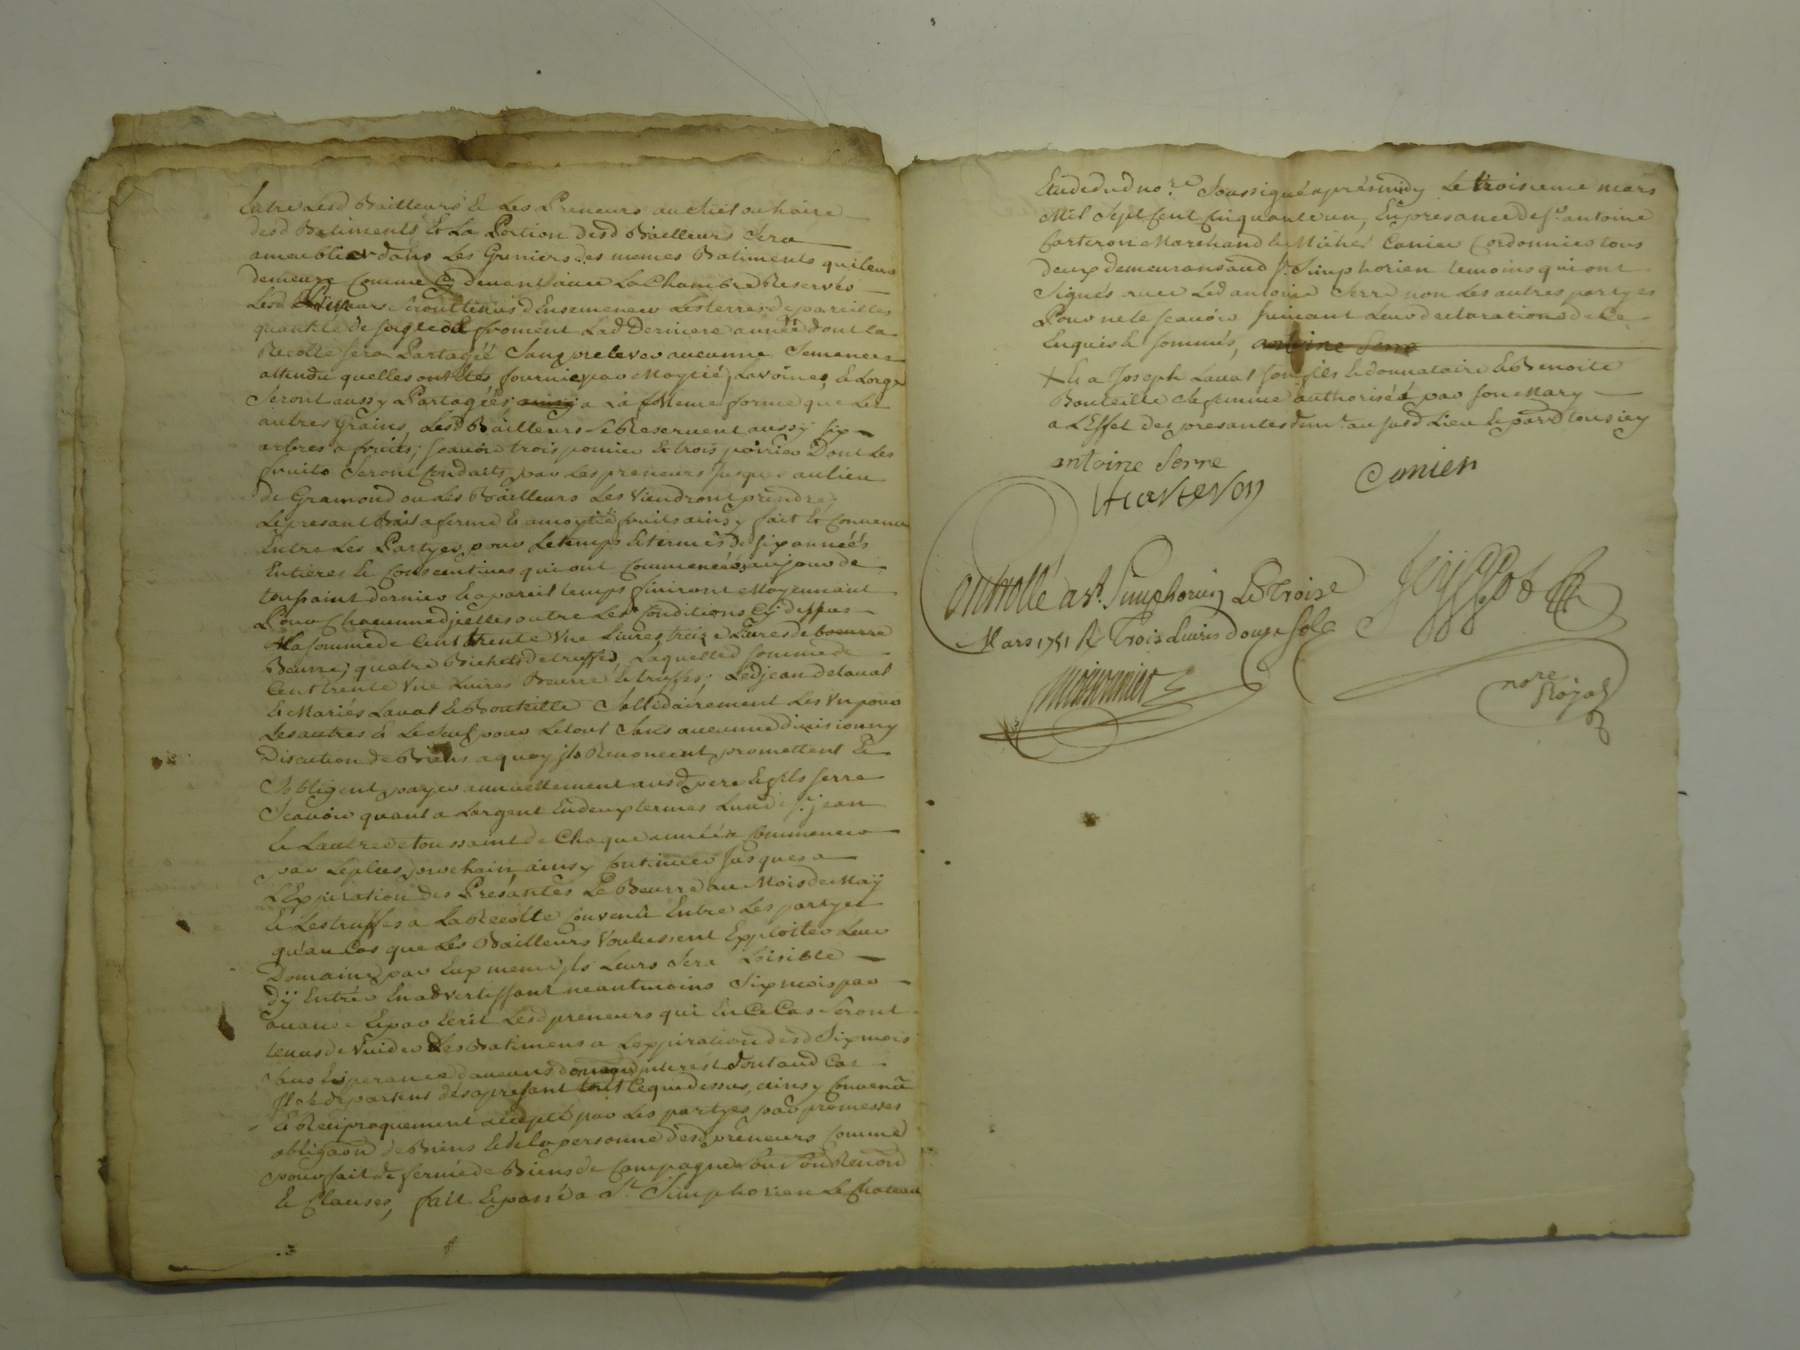 Entre Lesd Bailleurs & Les Preneurs au
desd Batiments, Et La Portion desd Bailleurs Sera
ameublier dans Les Greniers des memes Batiments quileur
demeure Comme Cy devant avec La Chambre Reservée
Lesd Seront tenus d'Ensemencer Lesterres de pareilles
quantité de seigle et froment Lad Derniere année dont la
Recolte sera Partagée Sans prelever aucunne Semences
attendu quelles ont étés fournies par Moytié, Lavoine, & Lorge
Seront aussy Partagées a La meme forme que Les
autres Grains, Lesd Bailleurs se Reservent aussy six
arbres a fruits, scavoir trois pomier & trois poirier Dont Les
fruits Seront Conduits par Les preneurs Jusques au lieu
de Gramond ou Les Bailleurs Les Viendront prendre,
Le presant Bail a ferme & a moytié fruits ainsy fait Et Convenu
Entre Les Partyes pour Le temps & termes de six années
Entieres & Consecutives qui ont Commencées au jour de
toussaint dernier & a pareil temps finiront Moyennant
Pour Chacunne d'jcelles outre Les Conditions Cy dessus
La somme de Cent trente Une Livres, treize Livres de boeurre
Beurre, quatre Bichets de truffes, Laquelled somme de
Cent trente Une Livres Beurre & truffes, Led jean delaval
& Mariés Laval & Bouteille Sollidairement Les Un pour
Les autres & Le Seul pour Letout Sans aucunne division ny
Discution de Biens a quoy jls Renoncent promettent &
S'obligent payer annuellement ausd pere & fils serre
Scavoir quant a Largent En deux termes Lun de St jean
& Lautre de toussaint de Chaque année a Commencer
par Le plus prochain, ainsy Continuer Jusques a
L'Expiration des Presantes Le Beurre au Mois de May
& Les truffes a La Recolte Convenu Entre Les partyes
qu'au Cas que Les Bailleurs Voulussent Exploiter Leur
Domaine par Eux meme jls Leurs Sera Loisible
d'y Entrer En advertissant neantmoins Six mois par
avance & par Ecrit Lesd preneurs qui En Ce Cas Seront
tenus de Vuider Les Batimens a Lexpiration desd Six mois
Sans Esperance daucuns jnterest audit Cas
des apresant tout Ce que dessus, ainsy Convenû
& Reciproquement accepté par Les partyes par promesses
obligaon de Biens & de la personne desd preneurs Comme
pour fait de ferme de Biens de Campagne
& Clauses, fait & passé a St Simphorien Le Chateau
Etude dud nore. Soussigné après midy Le troisieme mars
Mil Sept Cent Cinquante un, En presance de Sr antoine
Carteron Marchand & Michel Canier Cordonnier tous
deux demeurans aud St Simphorien temoins qui ont
Signés avec Led antoine Serre non Les autres partyes
Pour ne le Scavoir suivant Leur declaration de Ce
Enquis & sommés, antoine Serre
+ & a Joseph Laval son fils & donnataire & Benoite
Bouteille Sa femme authorisée par son Mary
a L'Effet des presantes demt. au susd Lieu
antoine Serre
Carteron
Canier
Controllé a St. Simphorien Le Troise
Mars 1751 R Trois Livres douze sols
nore
Royal